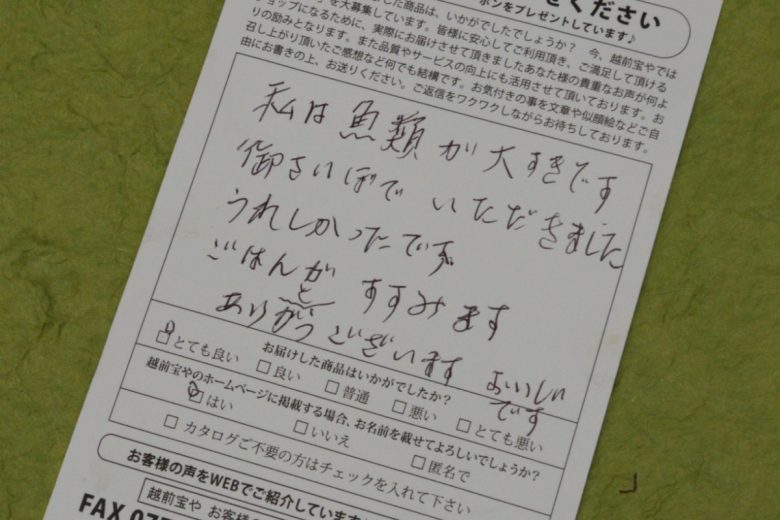 せください
ポンをプレゼントしています♪
した商品は、いかがでしたでしょうか？ 今、越前宝やでは
を大募集しています。皆様に安心してご利用頂き、ご満足して頂ける
ショップになるために、実際にお届けさせて頂きましたあなた様の貴重なお声が何よ
りの励みとなります。また品質やサービスの向上にも活用させて頂いております。お
召し上がり頂いたご感想など何でも結構です。お気付きの事を文章や似顔絵などご自
由にお書きの上、お送りください。ご返信をワクワクしながらお待ちしております。
私は魚類が大すきです
御さいぼでいただきました
うれしかったです
ごはんがすすみます
ありがとうございます おいしい
です
お届けした商品はいかがでしたか？
□とても良い □良い □普通 □悪い □とても悪い
越前宝やのホームページに掲載する場合、お名前を載せてよろしいでしょうか？
□はい □いいえ □匿名で
□ カタログご不要の方はチェックを入れて下さい
お客様の声をWEBでご紹介しています
越前宝や お客様の
FAX 077